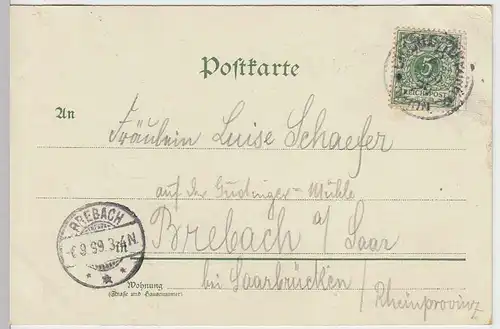 Postkarte
5
REICHSPOST
An
Fräulein Luise Schaefer
auf der Güdinger-Mühle
Brebach a/ Saar
bei Saarbrücken/
Rheinprovinz
BREBACH
6 9 99. 3-4 N.
Wohnung
(Straße und Hausnummer)